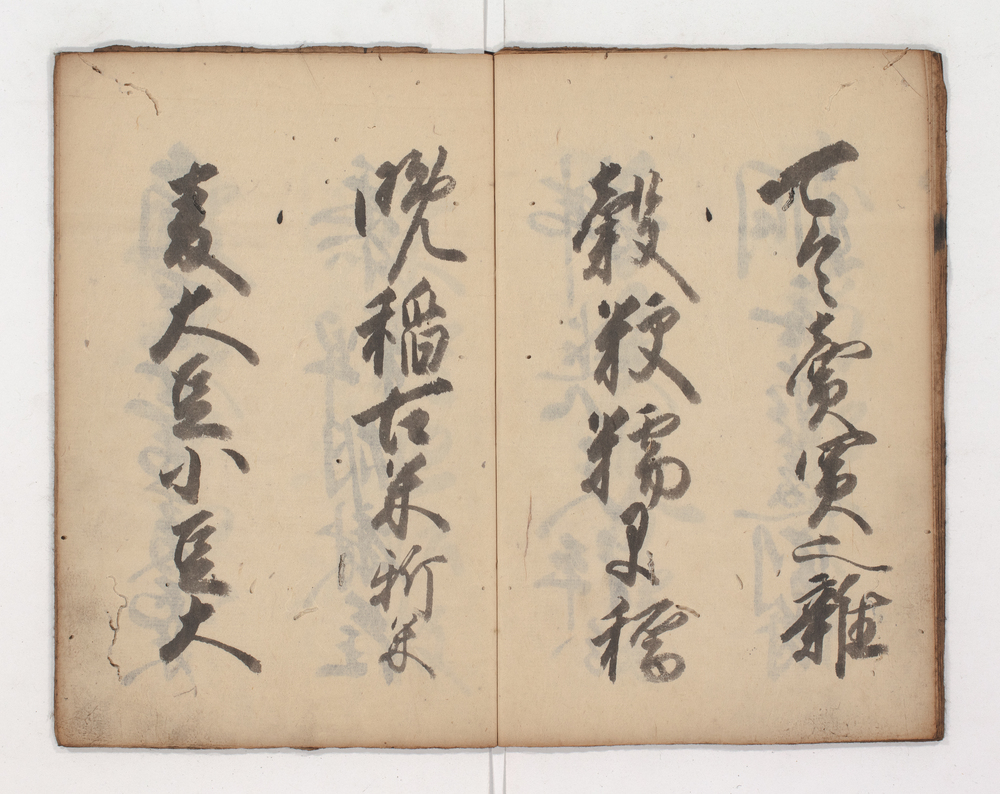 可令賣買也雜
穀粳糯早稲
晩稲古米新米
麦大豆小豆大